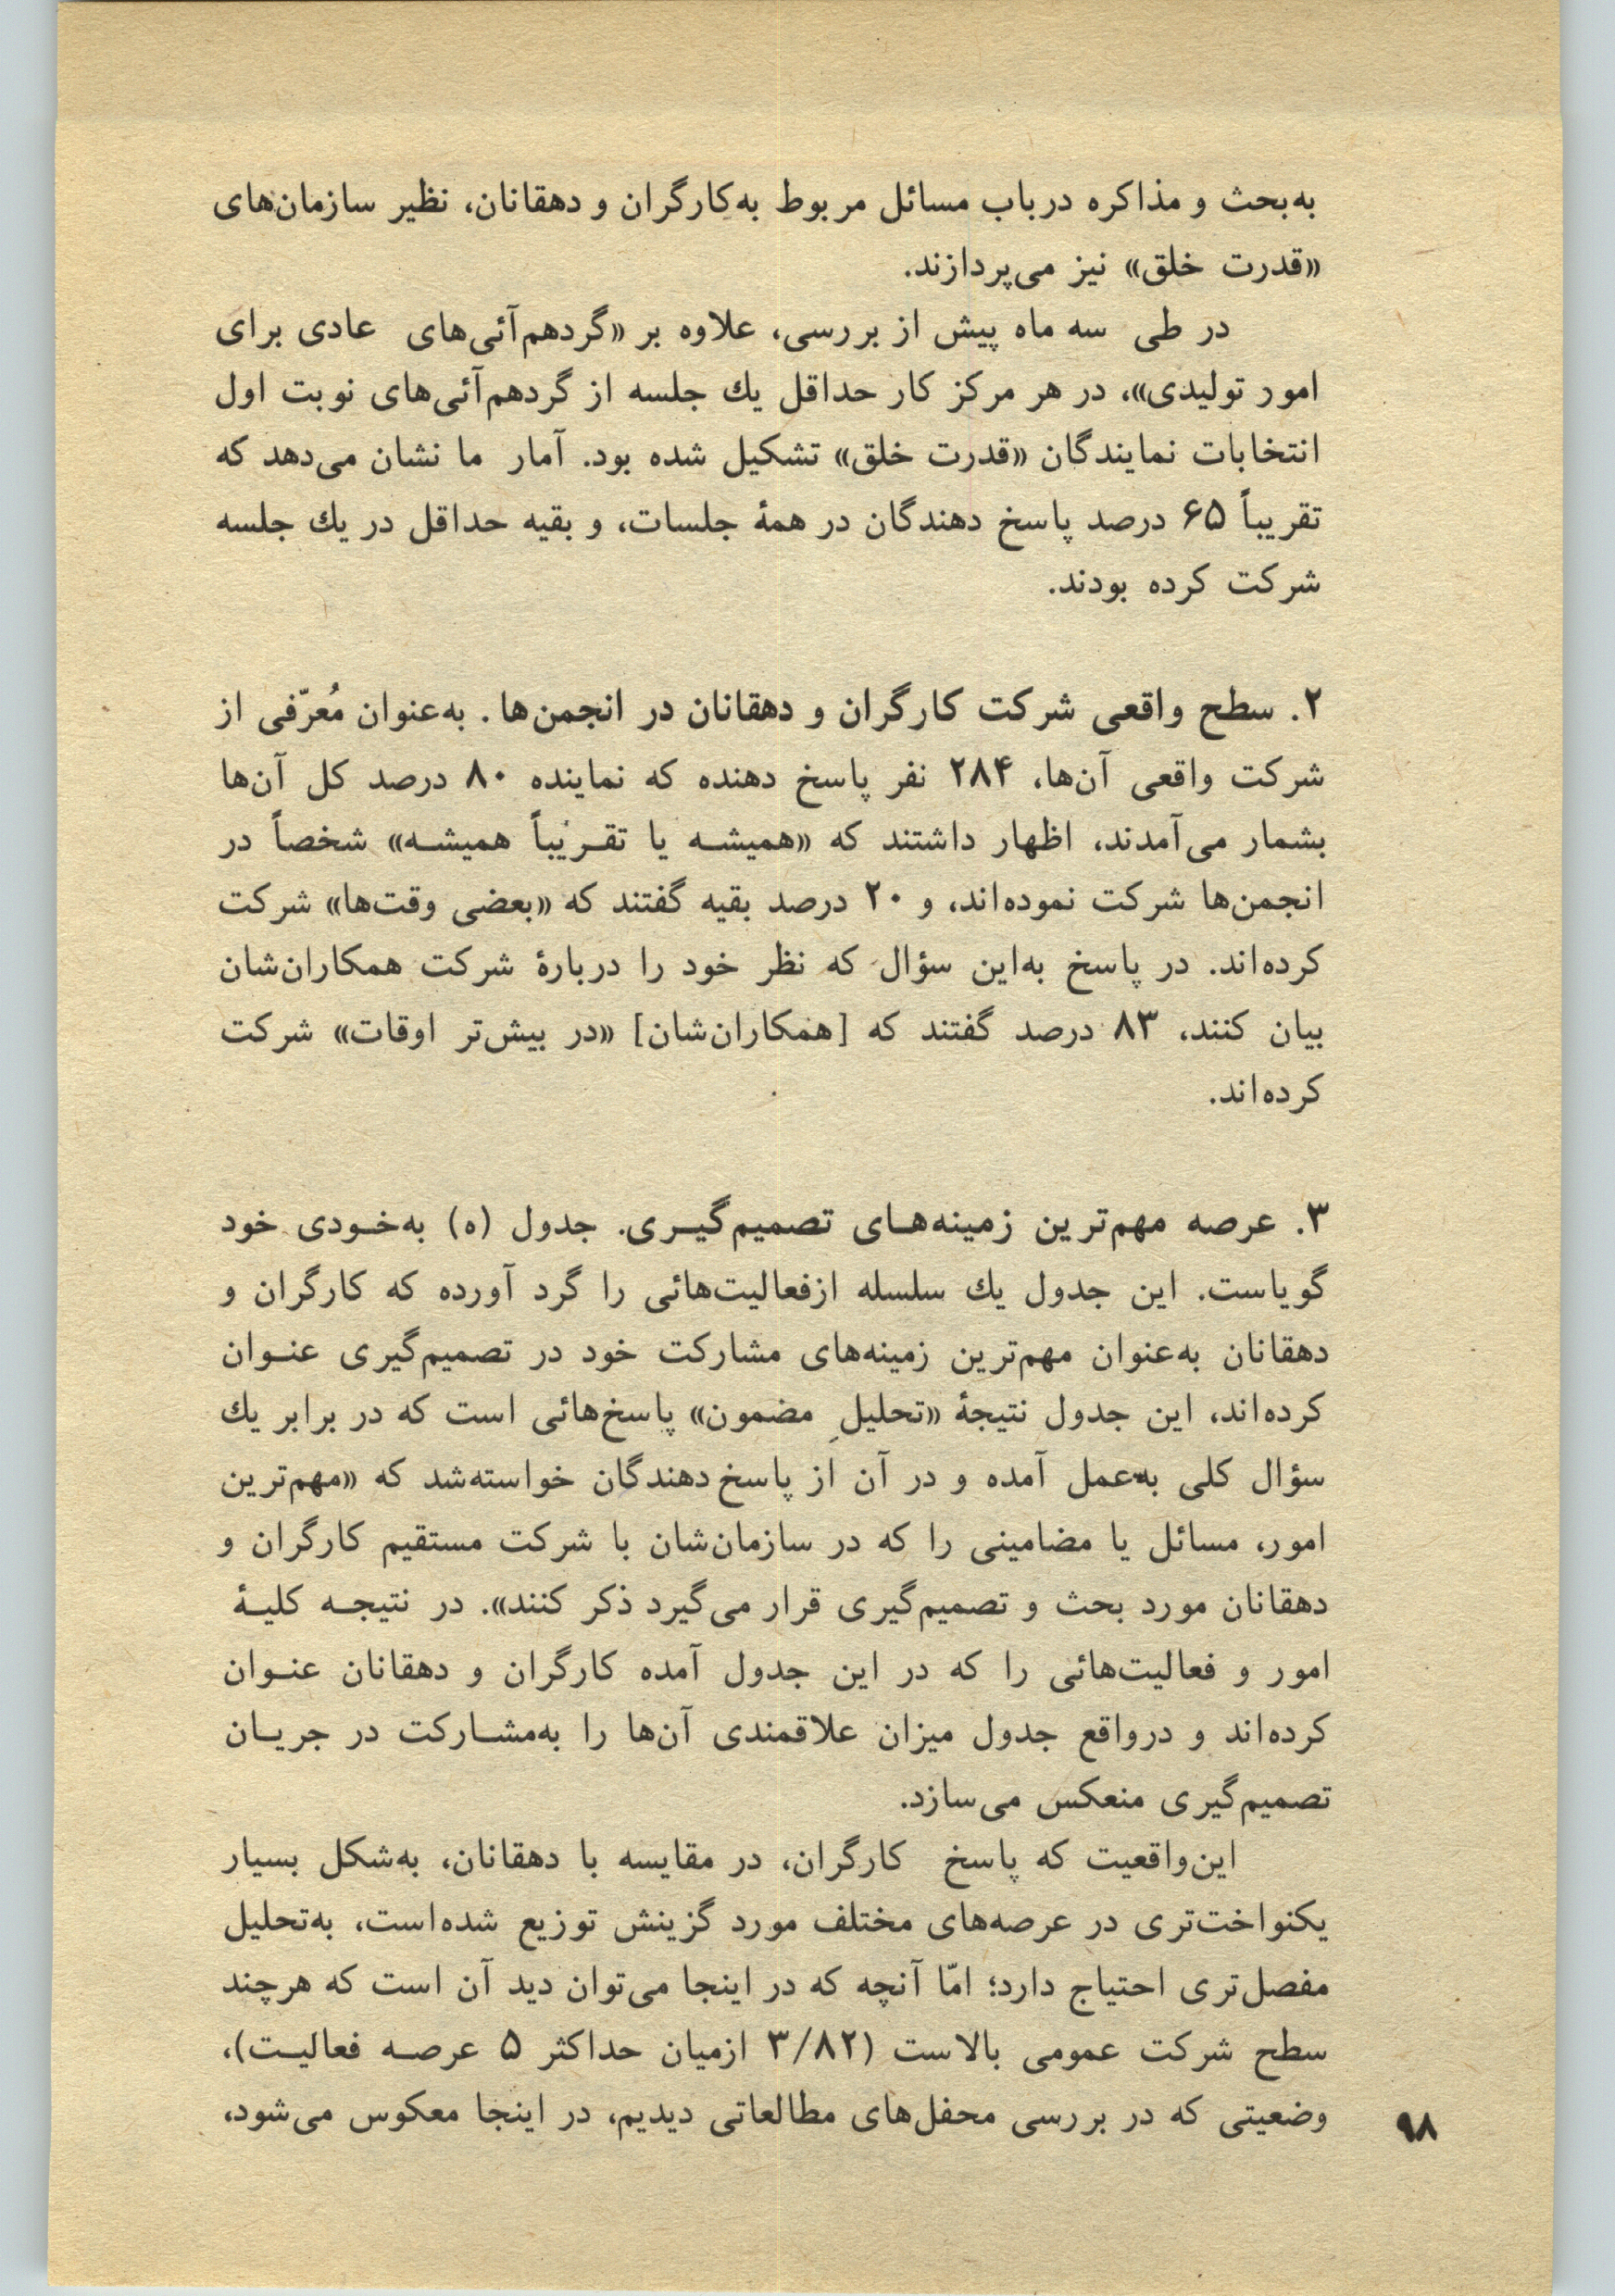 به‌بحث و مذاکره درباب مسائل مربوط به‌کارگران و دهقانان، نظیر سازمان‌های
«قدرت خلق» نیز می‌پردازند.
در طی سه ماه پیش از بررسی، علاوه بر «گردهم‌آئی‌های عادی برای
امور تولیدی»، در هر مرکز کار حداقل یك جلسه از گردهم‌آئی‌های نوبت اول
انتخابات نمایندگان «قدرت خلق» تشکیل شده بود. آمار ما نشان می‌دهد که
تقریباً ۶۵ درصد پاسخ دهندگان در همهٔ جلسات، و بقیه حداقل در یك جلسه
شرکت کرده بودند.
۲. سطح واقعی شرکت کارگران و دهقانان در انجمن‌ها. به‌عنوان مُعرّفی از
شرکت واقعی آن‌ها، ۲۸۴ نفر پاسخ دهنده که نماینده ۸۰ درصد کل آن‌ها
بشمار می‌آمدند، اظهار داشتند که «همیشـه یا تقـریباً همیشـه» شخصاً در
انجمن‌ها شرکت نموده‌اند، و ۲۰ درصد بقیه گفتند که «بعضی وقت‌ها» شرکت
کرده‌اند. در پاسخ به‌این سؤال که نظر خود را دربارهٔ شرکت همکاران‌شان
بیان کنند، ۸۳ درصد گفتند که [همکاران‌شان] «در بیش‌تر اوقات» شرکت
کرده‌اند.
۳. عرصه مهم‌ترین زمینه‌هـای تصمیم‌گیـری. جدول (ه) به‌خـودی خود
گویاست. این جدول یك سلسله ازفعالیت‌هائی را گرد آورده که کارگران و
دهقانان به‌عنوان مهم‌ترین زمینه‌های مشارکت خود در تصمیم‌گیری عنـوان
کرده‌اند، این جدول نتیجهٔ «تحلیلِ مضمون» پاسخ‌هائی است که در برابر یك
سؤال کلی به‌عمل آمده و در آن از پاسخ‌دهندگان خواسته‌شد که «مهم‌ترین
امور، مسائل یا مضامینی را که در سازمان‌شان با شرکت مستقیم کارگران و
دهقانان مورد بحث و تصمیم‌گیری قرار می‌گیرد ذکر کنند». در نتیجـه کلیـهٔ
امور و فعالیت‌هائی را که در این جدول آمده کارگران و دهقانان عنـوان
کرده‌اند و درواقع جدول میزان علاقمندی آن‌ها را به‌مشـارکت در جریـان
تصمیم‌گیری منعکس می‌سازد.
این‌واقعیت که پاسخ کارگران، در مقایسه با دهقانان، به‌شکل بسیار
یکنواخت‌تری در عرصه‌های مختلف مورد گزینش توزیع شده‌است، به‌تحلیل
مفصل‌تری احتیاج دارد؛ امّا آنچه که در اینجا می‌توان دید آن است که هرچند
سطح شرکت عمومی بالاست (۳/۸۲ ازمیان حداکثر ۵ عرصـه فعالیـت)،
وضعیتی که در بررسی محفل‌های مطالعاتی دیدیم، در اینجا معکوس می‌شود،
۹۸